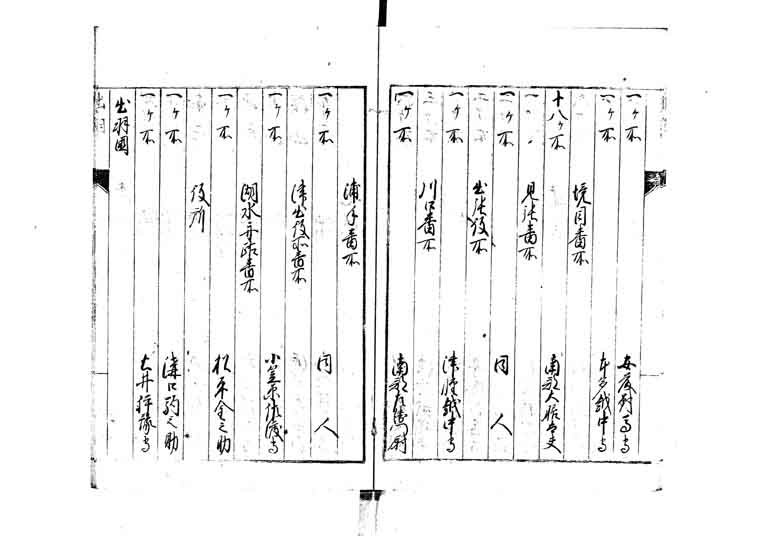 一ヶ所 安藤対馬守
一ヶ所 本多越中守
境目番所
十八ヶ所 南部大膳大夫
見張番所
一ヶ所 同人
出張役所
一ヶ所 津軽越中守
川口番所
一ヶ所 南部左衛門尉
浦手番所
一ヶ所 同人
津出役所番所
一ヶ所 小笠原佐渡守
湖水舟路番所
一ヶ所 松平金之助
役所
一ヶ所 溝口駒之助
一ヶ所 土井伊豫守
出羽國